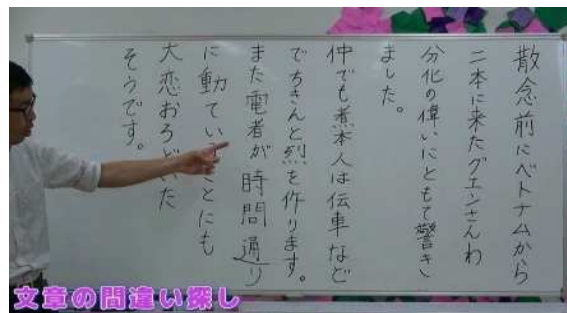 散念前にベトナムから
二本に来たグエンさんわ
分化の偉いにともて警き
ました。
仲でも煮本人は伝車など
でちきんと烈を作ります。
また電者が時間通り
に動ていことにも
大恋おろどいた
そうです。
文章の間違い探し